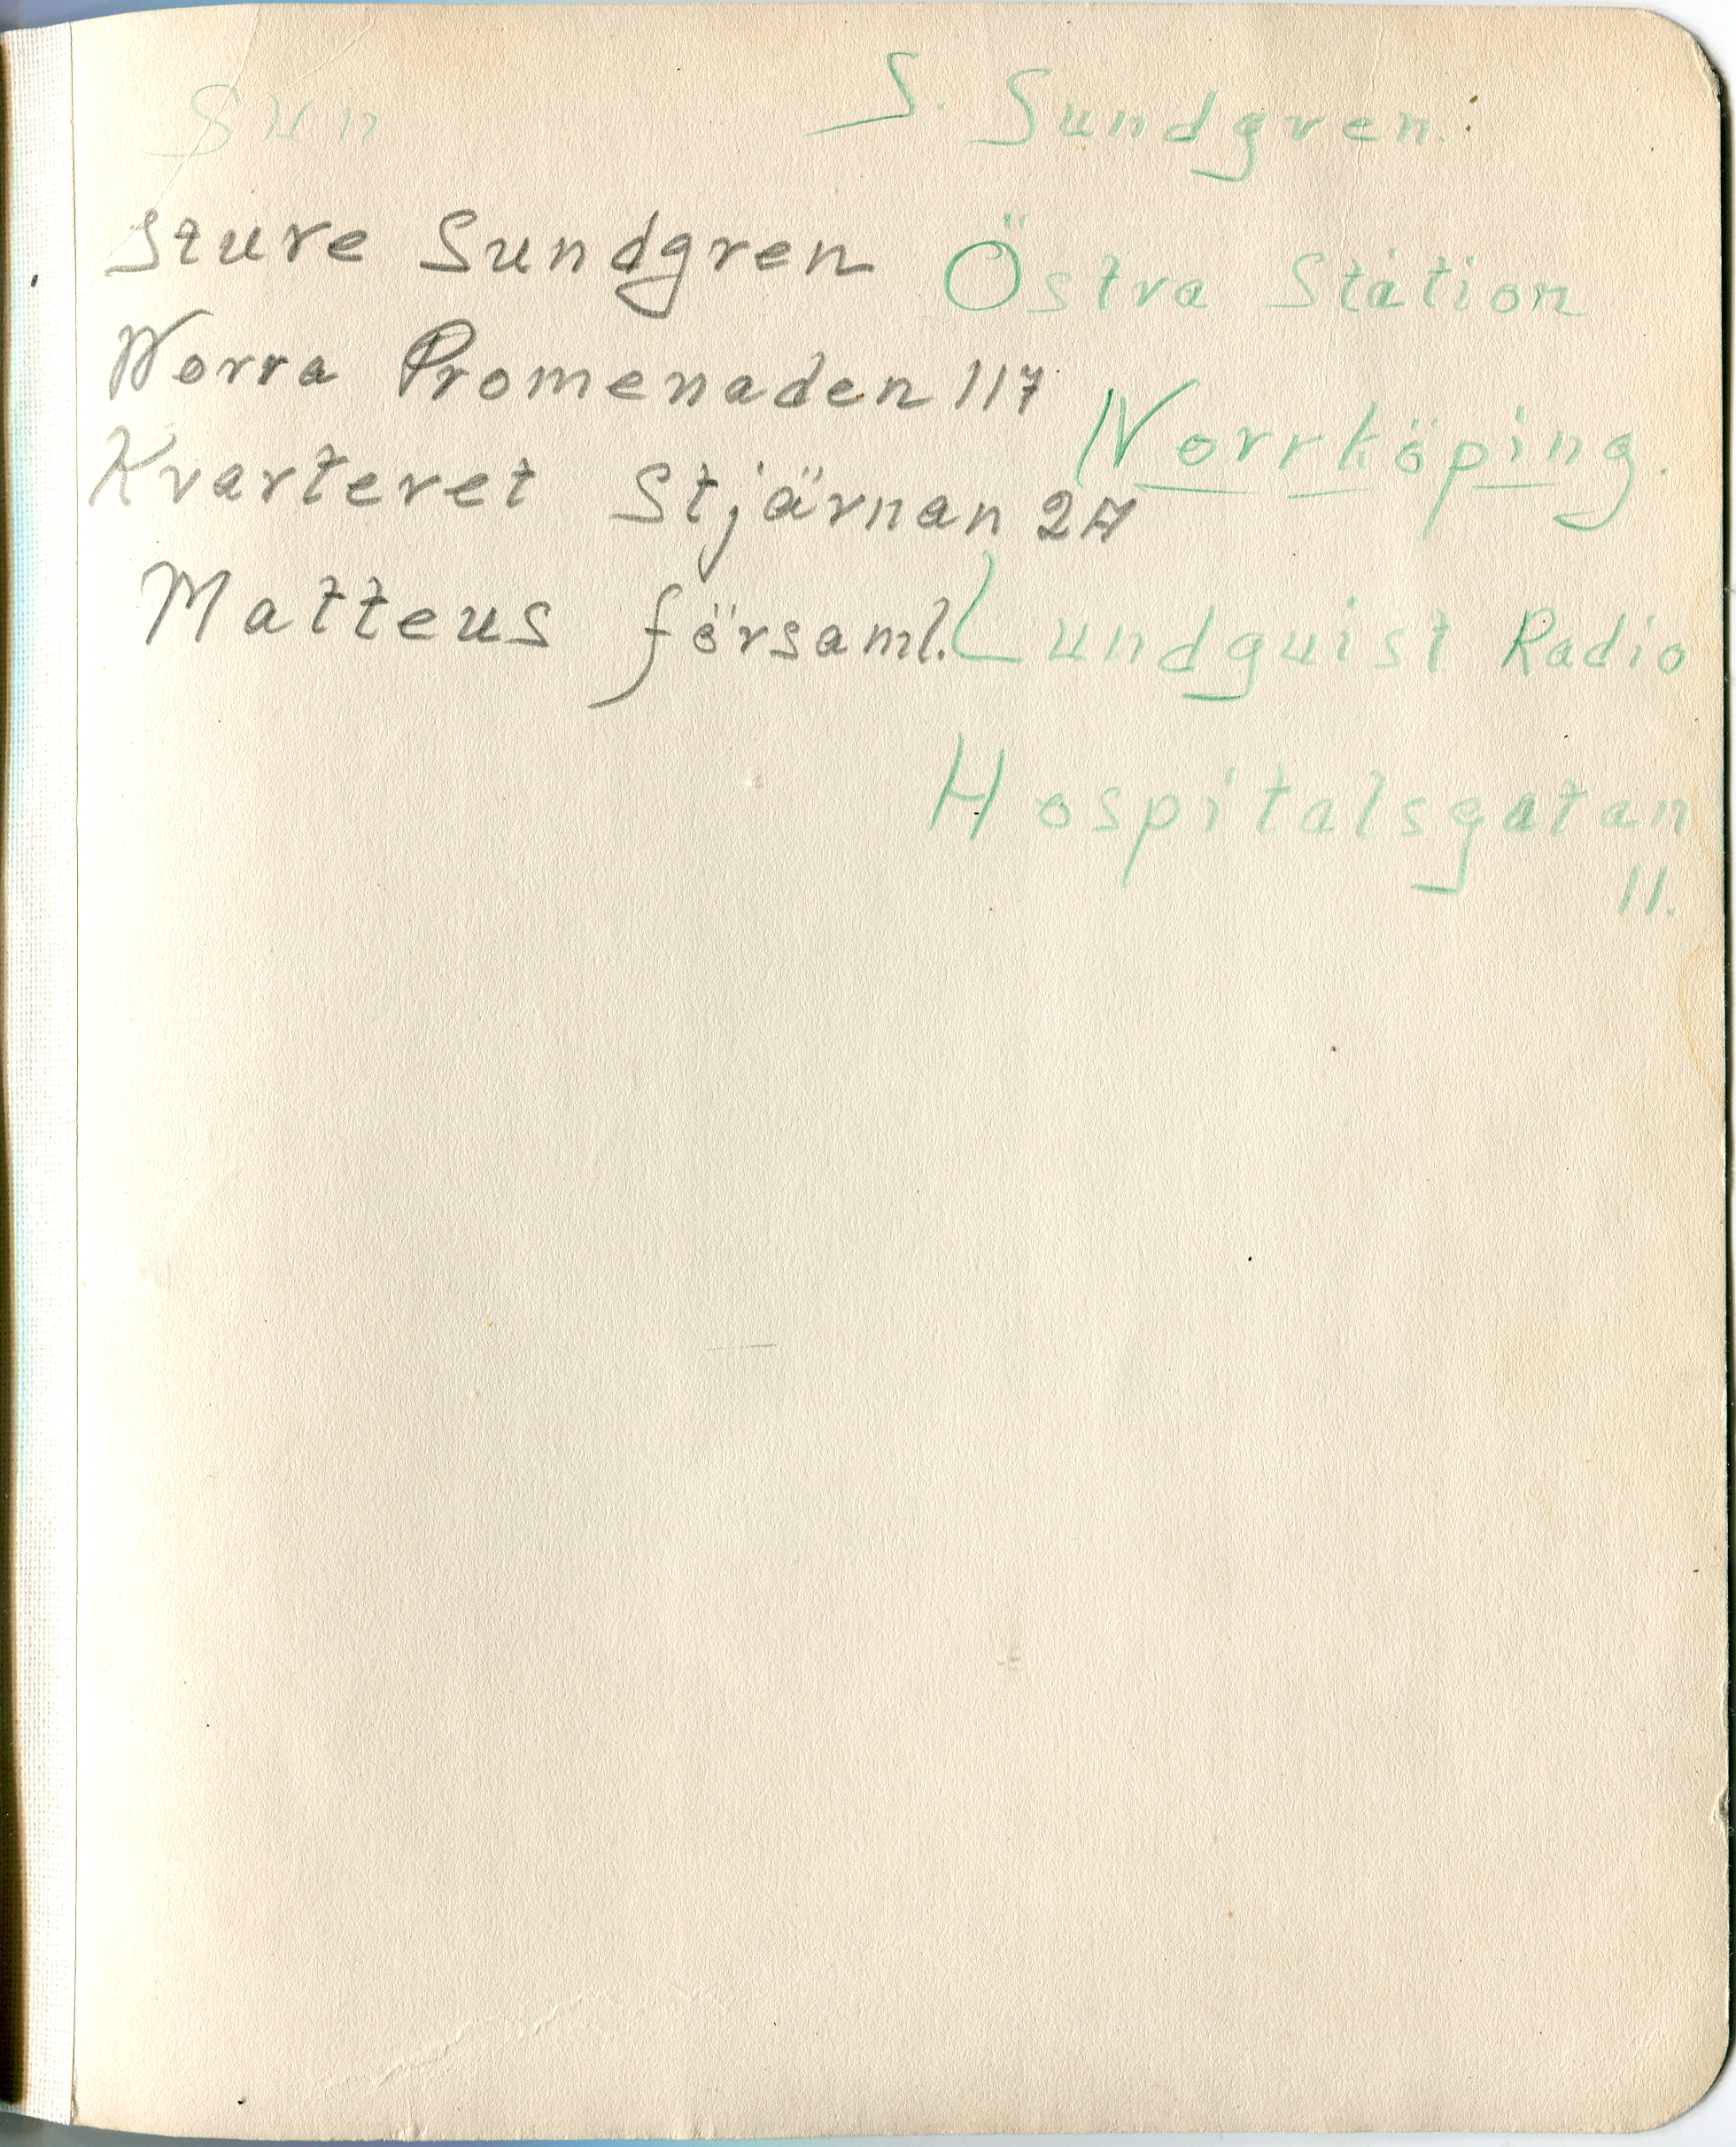 Sun
S. Sundgren.
Sture Sundgren
Norra Promenaden 117
Kvarteret Stjärnan 27
Matteus församl.
Östra Station
Norrköping.
Lundquist Radio
Hospitalsgatan
11.